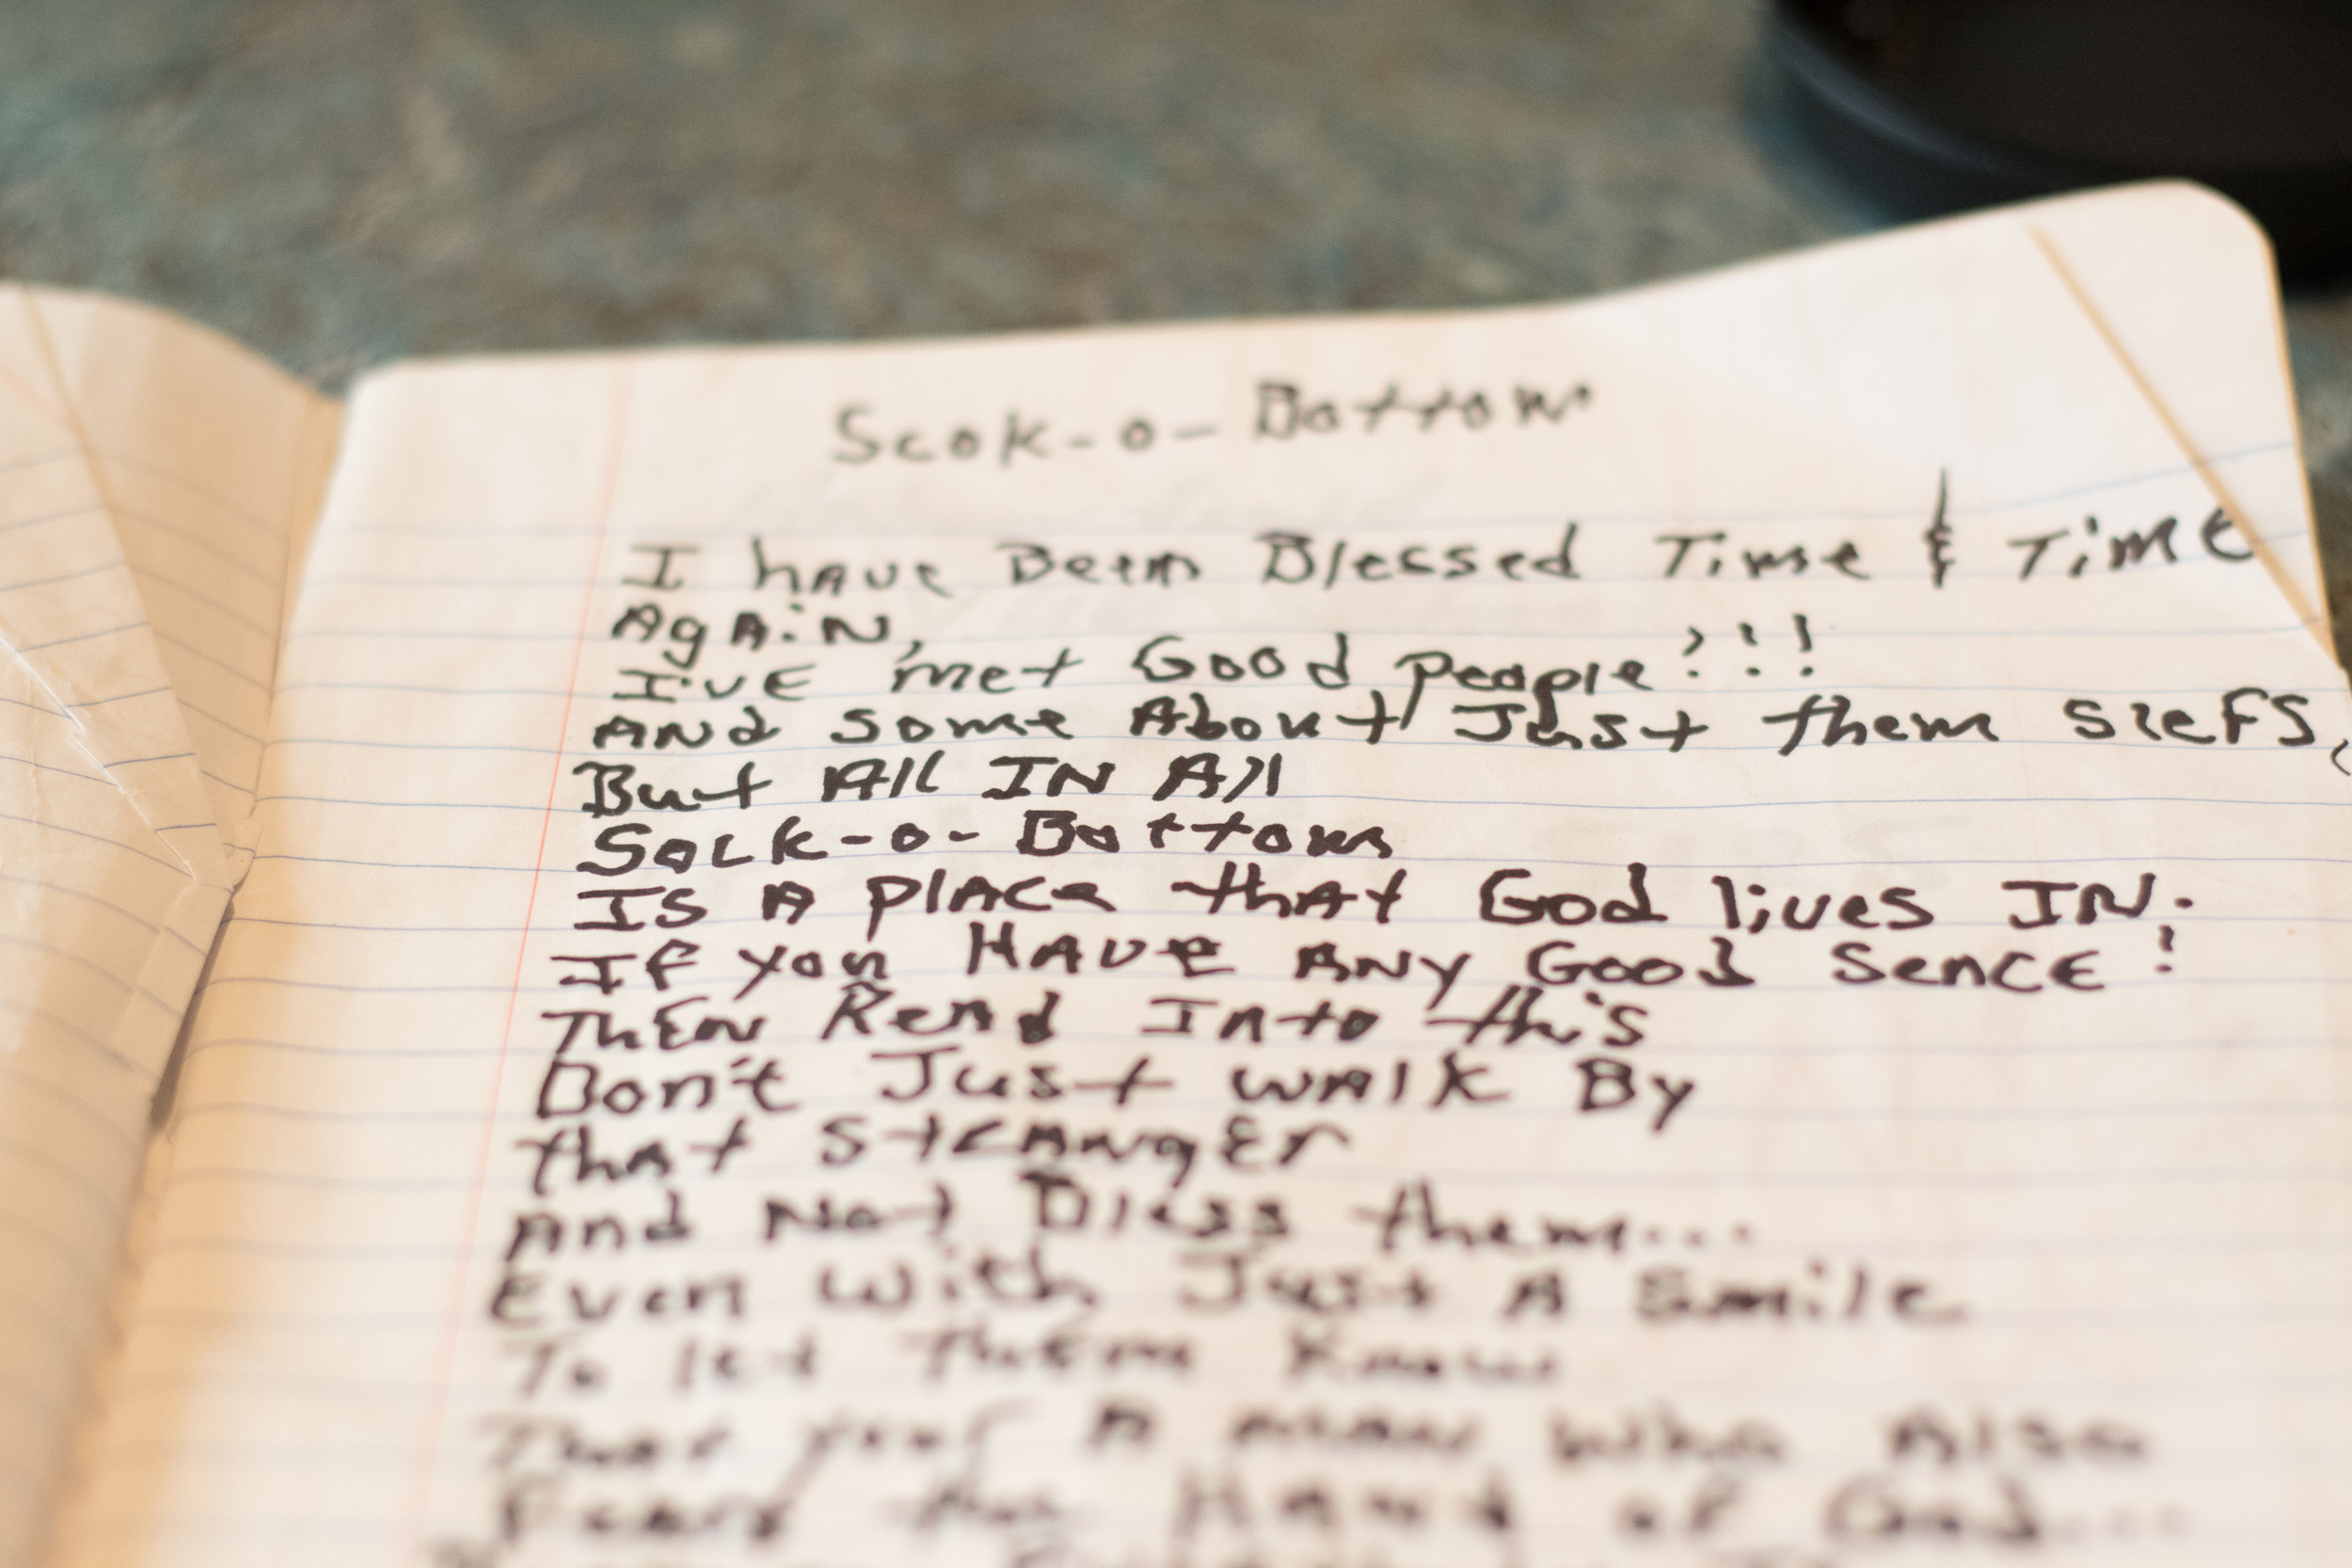 Scok-o-Bottom
I have Been Blessed Time & Time
Again,
I've met Good people!!!
And some About Just them slefs,
But All IN All
Sock-o-Bottom
Is A place that God lives IN.
If you HAVE ANY Good Sence!
Then Read Into this
Don't Just walk By
that stranger
And Not Bless them...
Even With Just A Smile
To let them Know
That your A man who Also
Fears the Hand of God...